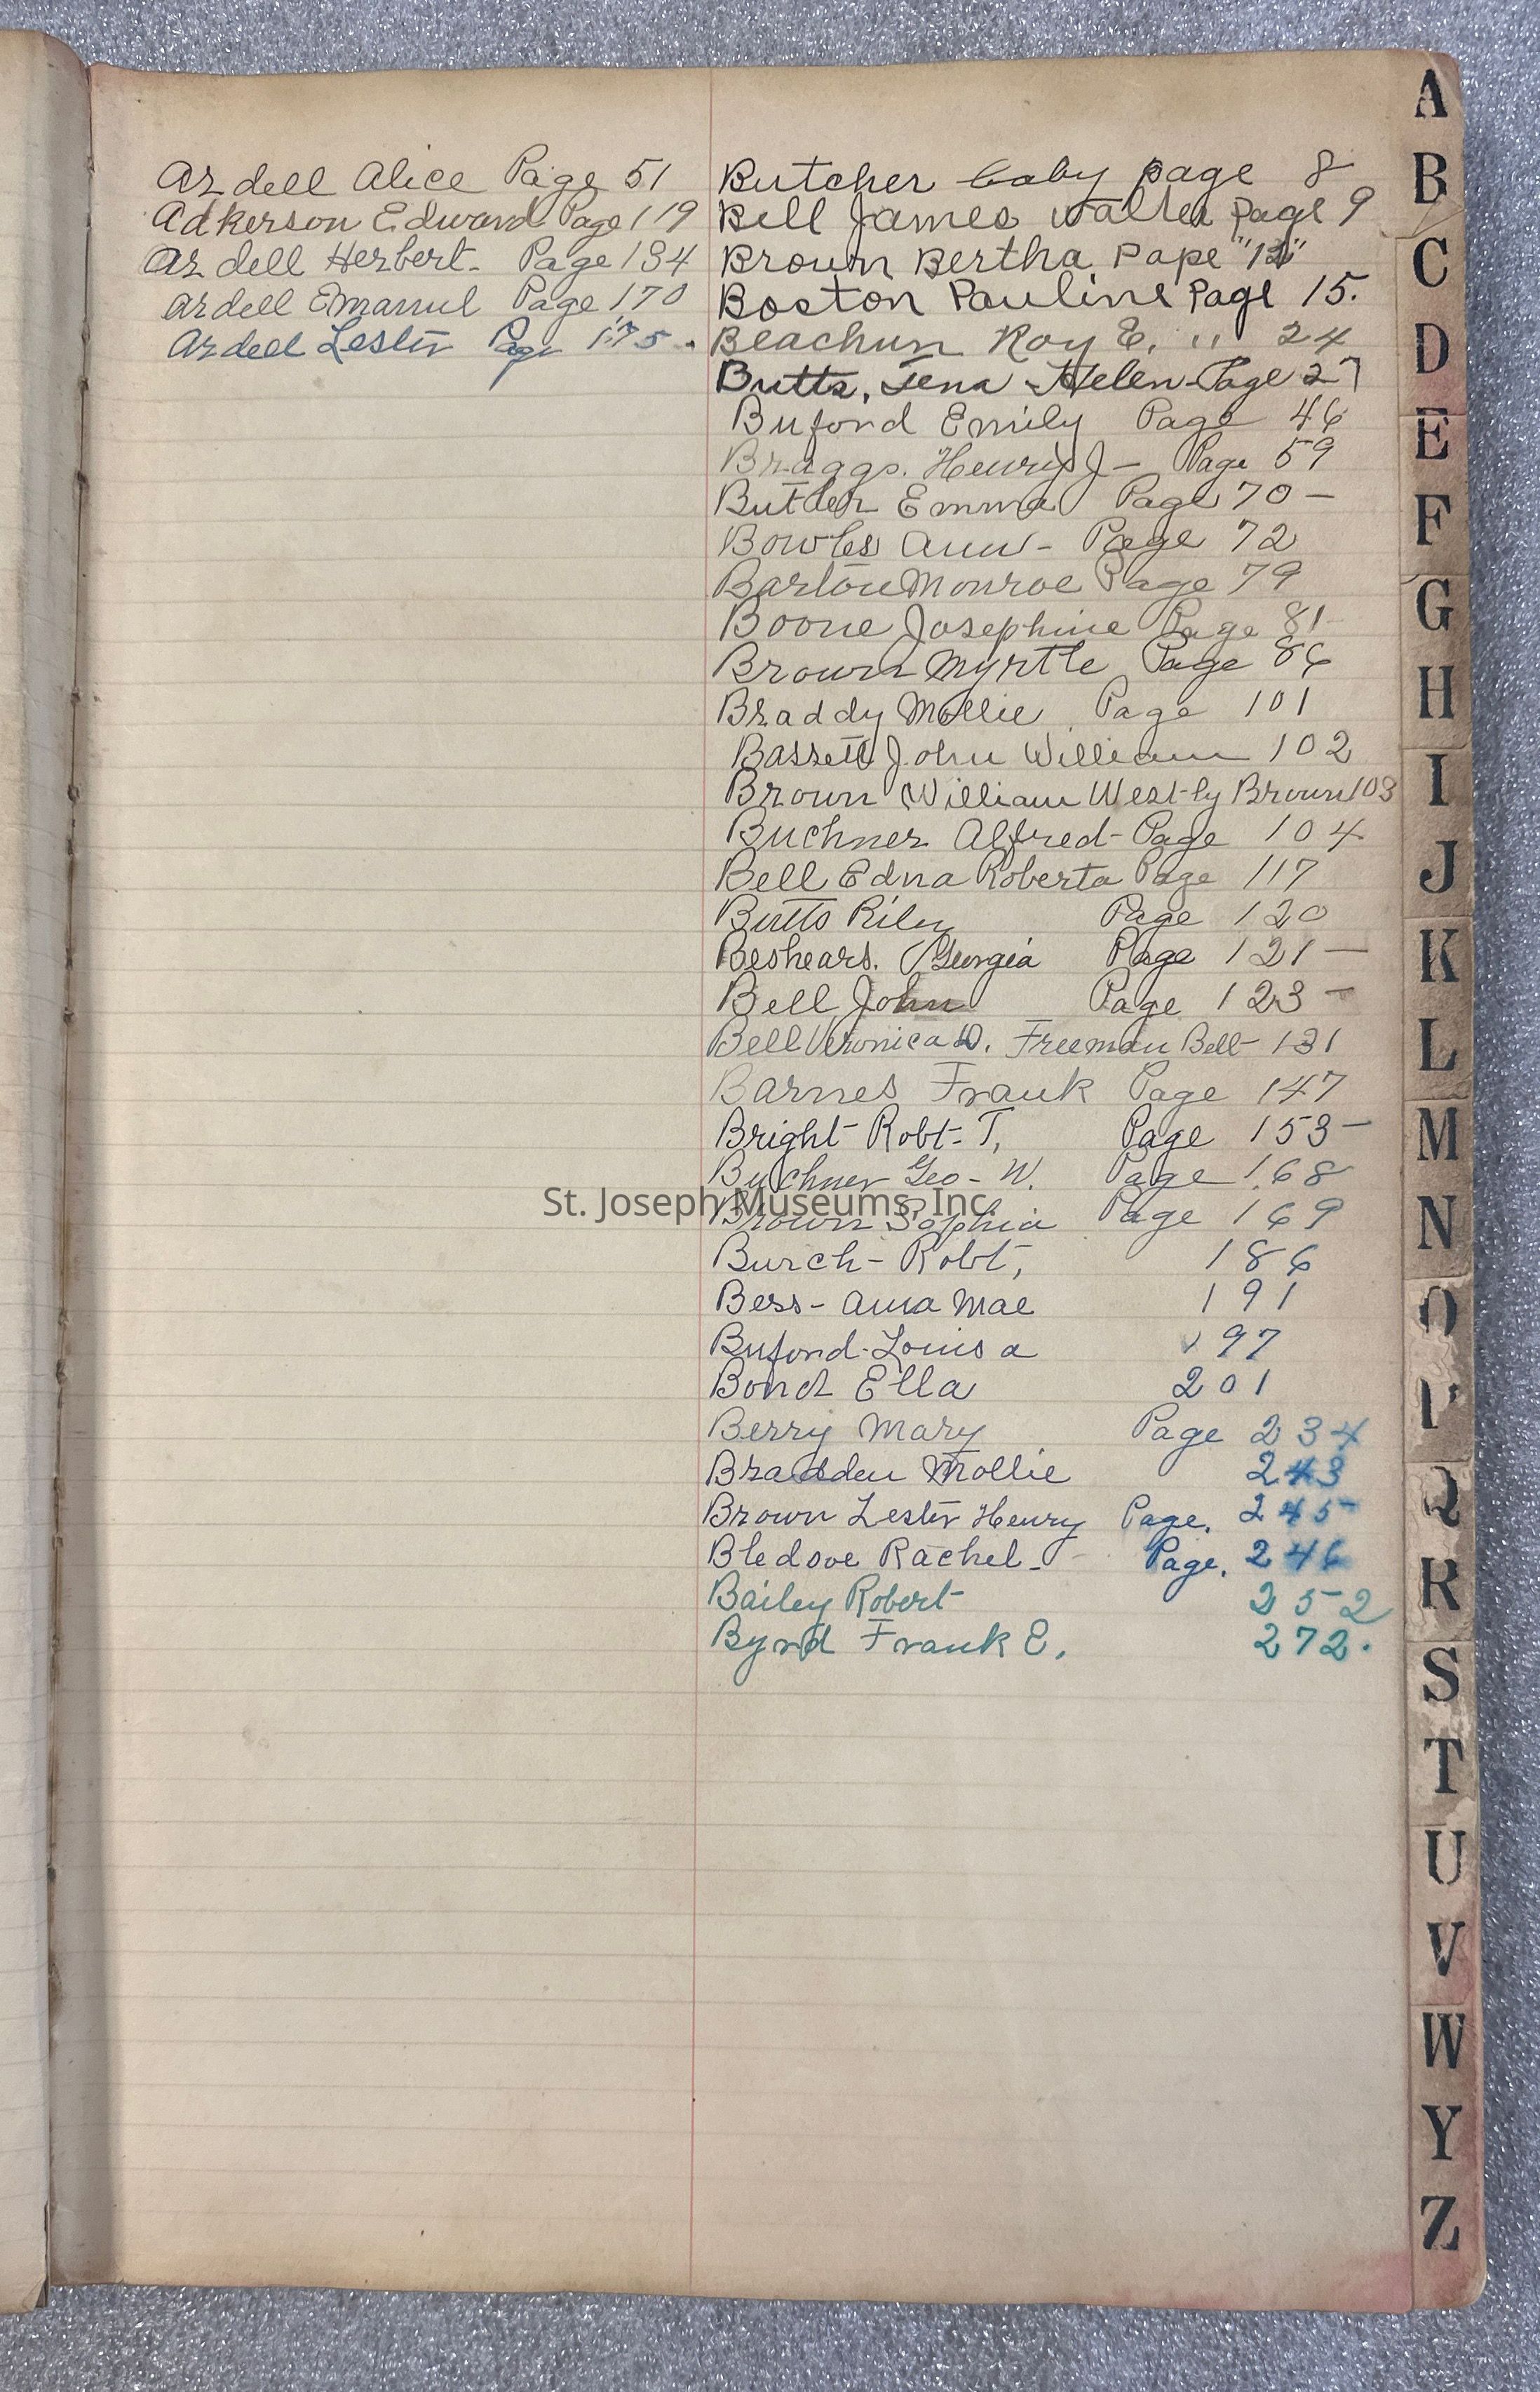 Ardell Alice Page 51
Adkerson Edward Page 119
Ardell Herbert- Page 134
Ardell Emanuel Page 170
Ardell Lester Page 175.
Butcher baby page 8
Bell James Walter Page 9
Brown Bertha Pape "12"
Boston Pauline Page 15.
Beachum Roy E. " 24
Butts, Tena Helen-Page 27
Buford Emily Page 46
Braggs. Henry J- Page 59
Butler Emma Page 70-
Bowles Ann- Page 72
Barton Monroe Page 79
Boone Josephine Page 81-
Brown Myrtle Page 86
Braddy Mollie Page 101
Bassett John William 102
Brown William Westly Brown 103
Buchner Alfred-Page 104
Bell Edna Roberta Page 117
Butts Riley Page 120
Beshears. Georgia Page 121-
Bell John Page 123-
Bell Veronica D. Freeman Bell- 131
Barnes Frank Page 147
Bright Robt- T, Page 153-
Buchner Geo- W. Page 168
St. Joseph Museums, Inc.
Brown Sophia Page 169
Burch- Robt, 186
Bess- Anna Mae 191
Buford-Louisa 197
Bond Ella 201
Berry Mary Page 234
Bradden Mollie 243
Brown Lester Henry Page. 245-
Bledsoe Rachel- Page. 246
Bailey Robert 252
Byrd Frank E. 272.
A
B
C
D
E
F
G
H
I
J
K
L
M
N
O
P
Q
R
S
T
U
V
W
Y
Z